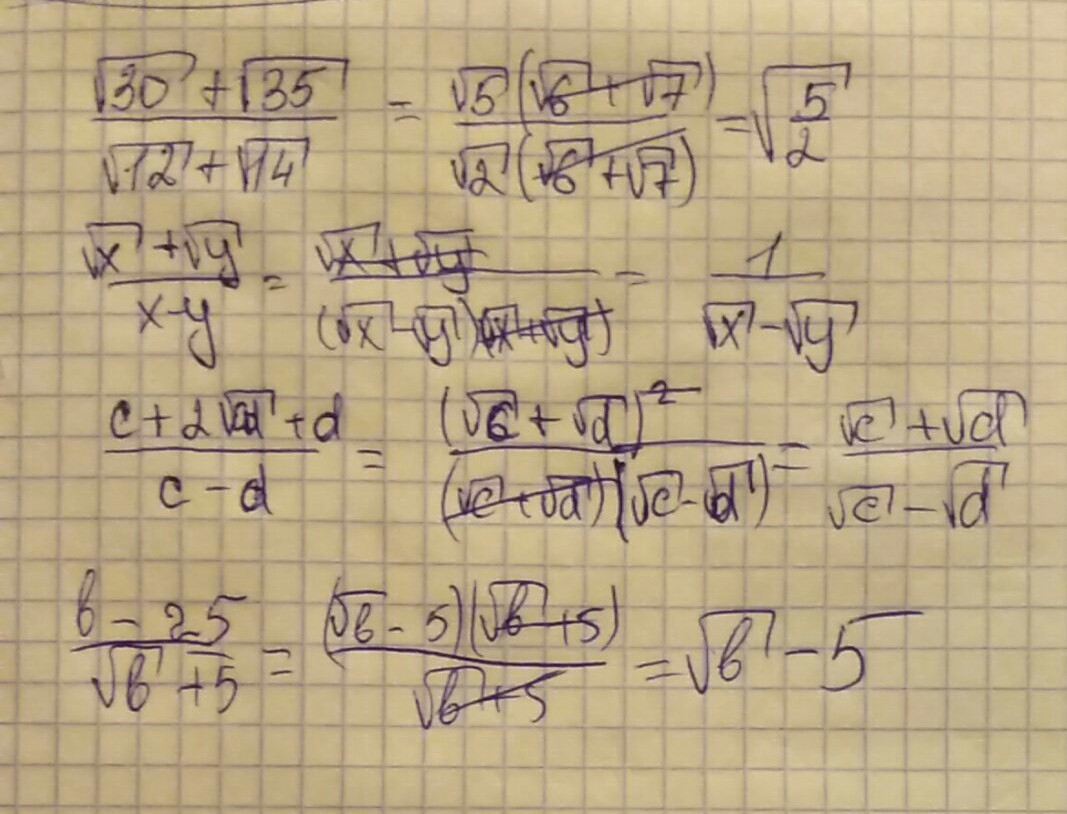 (√30 + √35)/(√12 + √14) = (√5(√6 + √7))/(√2(√6 + √7)) = √(5/2)
(√x + √y)/(x - y) = (√x + √y)/((√x - √y)(√x + √y)) = 1/(√x - √y)
(c + 2√cd + d)/(c - d) = (√c + √d)²/((√c + √d)(√c - √d)) = (√c + √d)/(√c - √d)
(b - 25)/(√b + 5) = ((√b - 5)(√b + 5))/(√b + 5) = √b - 5